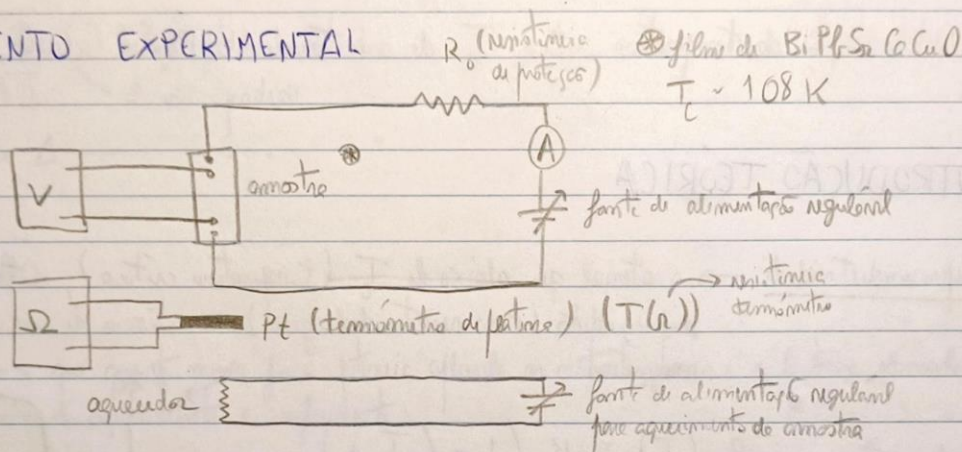 NTO EXPERIMENTAL
R₀ (resistência
de proteção)
⊛ filme de BiPbSrCaCuO
Tc ~ 108 K
A
V
⊛
amostra
fonte de alimentação regulável
Ω
Pt (termómetro de platina) (T(r)) → resistência
termómetro
aquecedor
fonte de alimentação regulável
para aquecimento da amostra